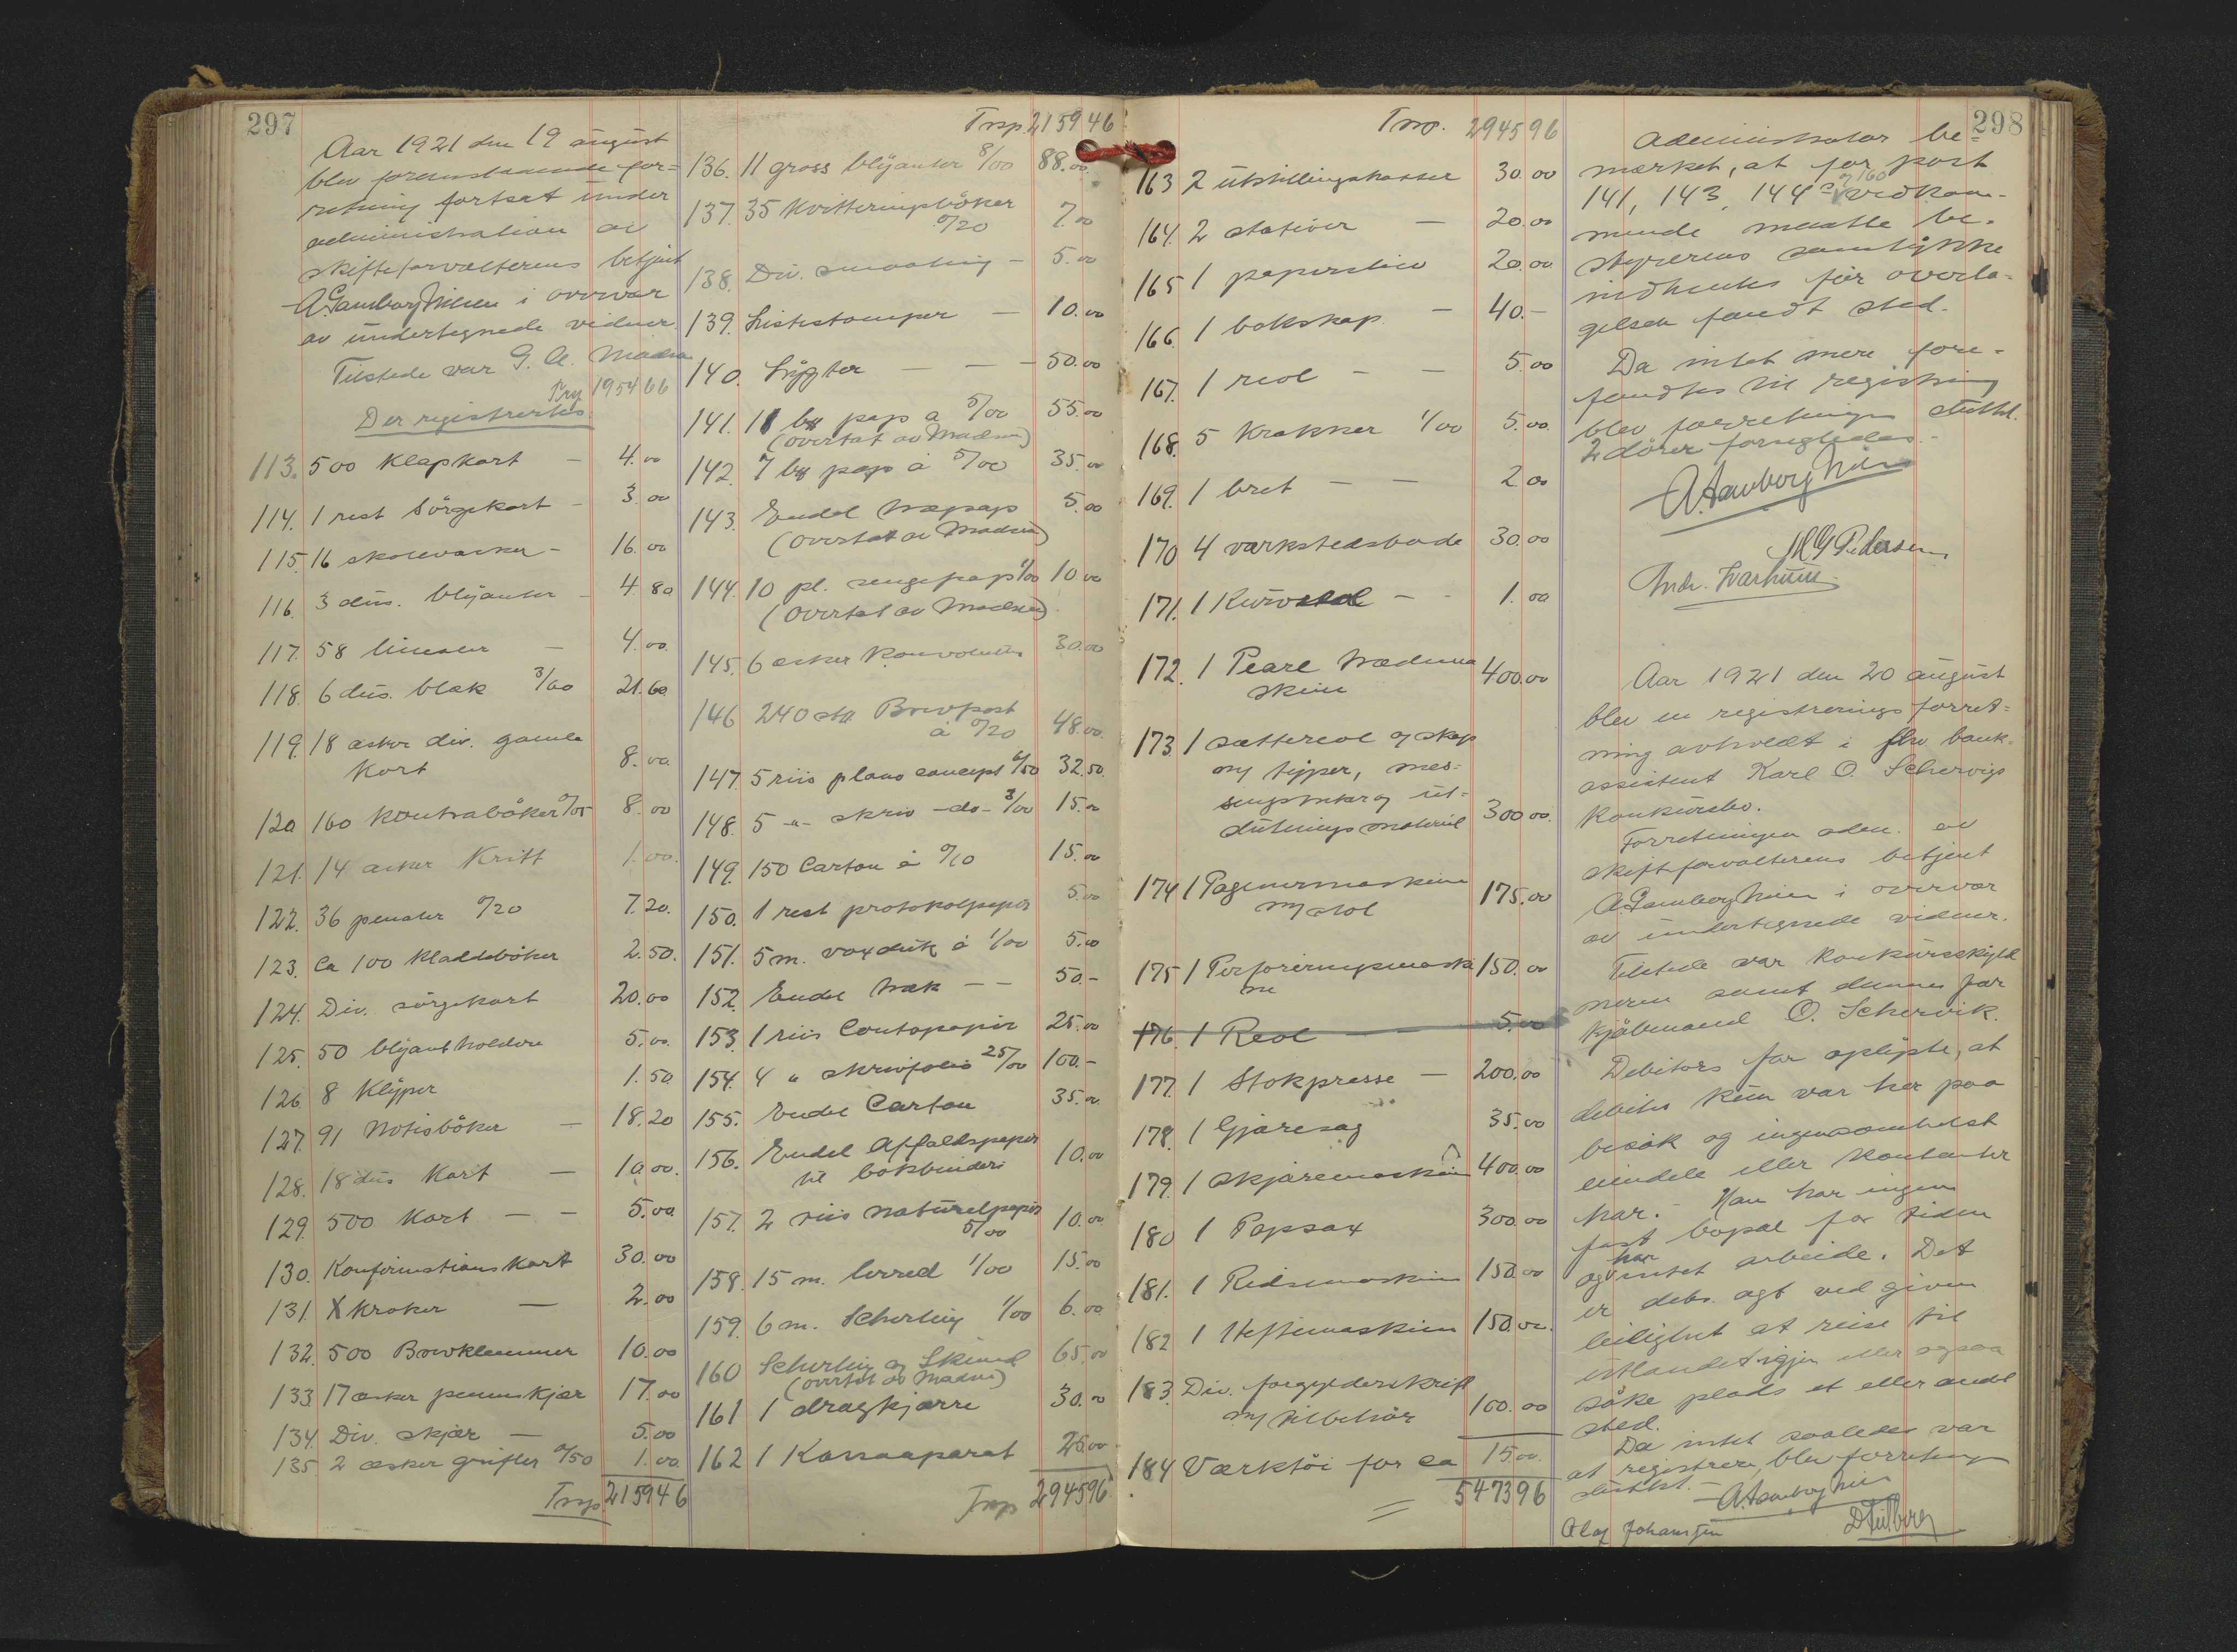 297
Aar 1921 den 19 august
blev forenstaaende for=
retning fortsat under
administration av
skifteforvalterens betjent
A. Gamborg Nilsen i overvær
av undertegnede vidner.
Tilstede var G. A. Madsen
Trsp 1954 66
Der registrertes
113. 500 Klapkort — 4.00
114. 1 rest Sörgekort - 3.00
115. 16 skolevasker - 16.00
116. 3 dus. blyanter - 4 80
117. 58 linealer — 4.00
118. 6 dus. blæk 3/60 21.60
119. 18 æsker div. gamle
Kort 8.00
120 160 kontrabøker 0/05 8.00
121. 14 æsker Kritt 1.00.
122. 36 penaler 0/20 7.20.
123. Ca 100 Kladdebøker 2.50.
124. Div. sörgekort 20.00
125. 50 blyantholdere 5.00.
126. 8 Klyper 1.50.
127. 91 Notisbøker — 18.20
128. 18 dus Kort — 10.00.
129. 500 Kort — — 5.00
130. Konfirmations Kort 30.00
131. X kroker — 2.00
132. 500 Brevklemmer 10.00
133. 17 æsker penneskjær 17.00
134. Div. skjær — 5.00
135 2 æsker grifler 0/50 1.00
Trsp 2159 46
Trsp. 2159 46
136. 11 gross blyanter 8/00 88.00
137. 35 Kvitteringsbøker
0/20 7.00
138. Div. smaating — 5.00
139. Listestamper — 10.00
140. Lygter — — — 50.00
141. 11 bx pap a 5/00 55.00
(overtat av Madsen)
142. 7 bx pap à 5/00 35.00
143. Endel træpap 5.00
(overtat av Madsen)
144. 10 pl. sengepap 1/00 10 00
(overtat av Madsen)
145. 6 æsker Konvolutter 30.00
146 240 stk Brevpost
à 0/20 48.00.
147. 5 riis plano concept 6/50 32.50.
148. 5 -"- skriv -do- 3/00 15.00
149. 150 Carton à 0/10 15.00
150. 1 rest protokolpapir 5.00
151. 5 m. voxduk à 1/00 5.00
152. Endel træk — — 50.-
153. 1 riis Contopapir 25.00
154. 4 " skrivfolio 25/00 100.-
155. Endel Carton 35.00
156. Endel Affaldspapir
til bokbinderi 10.00
157. 2 riis naturelpapir
5/00 10.00
158. 15 m. lerred 1/00 15.00
159. 6 m. Schirting 1/00 6.00
160 Schirting og Skind 65.00
(overtat av Madsen)
161 1 dragkjærre 30.00
162 1 Karraaparat 25.00
Trsp 2945 96
Trsp. 2945 96
163 2 utstillingskasser 30.00
164. 2 stativer — 20.00
165 1 papirstativ 20.00
166. 1 bokskap — 40.-
167. 1 reol — — 5.00
168. 5 Krakker 1/00 5.00.
169. 1 bret — — 2.00
170 4 værkstedsborde 30.00
171. 1 Kurvstol — - 1.00
172. 1 Pearl trædema
skine 400.00
173. 1 sættereol og skap
m/ typer, mes-
singstreker og ut-
slutningsmateriel 300.00.
174 1 Pagineermaskine 175.00
m/ stol
175 1 Perforeringsmaski 150.00
ne
176. 1 Reol 5.00
177. 1 Stokpresse — 200.00
178. 1 Gjæresag 35.00
179. 1 skjæremaskin 400.00
180 1 Papsax 300.00
181. 1 Ridsemaskin 150.00
182 1 Heftemaskin 150.00.
183. Div. forgylderskrift
m/ tilbehör 100.00
184 Værktöi for ca 15.00.
5473 96
298
Administrator be-
mærket, at for post
141, 143, 144 og 160 vedkom-
mende maatte be-
styrerens samtykke
indhentes før overta-
gelsen fandt sted.
Da intet mere fore-
fandtes til registrering
blev forretningen sluttet.
2 dører forsegledes.-
A. Gamborg Nilsen
M G Pedersen
Aar 1921 den 20 august
blev en registrerings forret=
ning avholdt i fhv. bank-
assistent Karl O. Schervigs
Konkursbo.
Forretningen adm. av
skifteforvalterens betjent
A. Gamborg Nilsen i overvær
av undertegnede vidner.
Tilstede var konkursskyld
neren samt dennes far
kjöbmand O. Schervik.
Debitors far oplyste, at
debitor kun var her paa
besök og ingensomhelst
eiendele eller kontanter
har.- Han har ingen
fast bopæl for tiden
og har intet arbeide. Det
er debs. agt ved given
leilighet at reise til
utlandet igjen eller ogsaa
söke plads et eller andet
sted.
Da intet saaledes var
at registrere, blev forretningen
sluttet.-
A. Gamborg Nilsen
Olaf Johansen